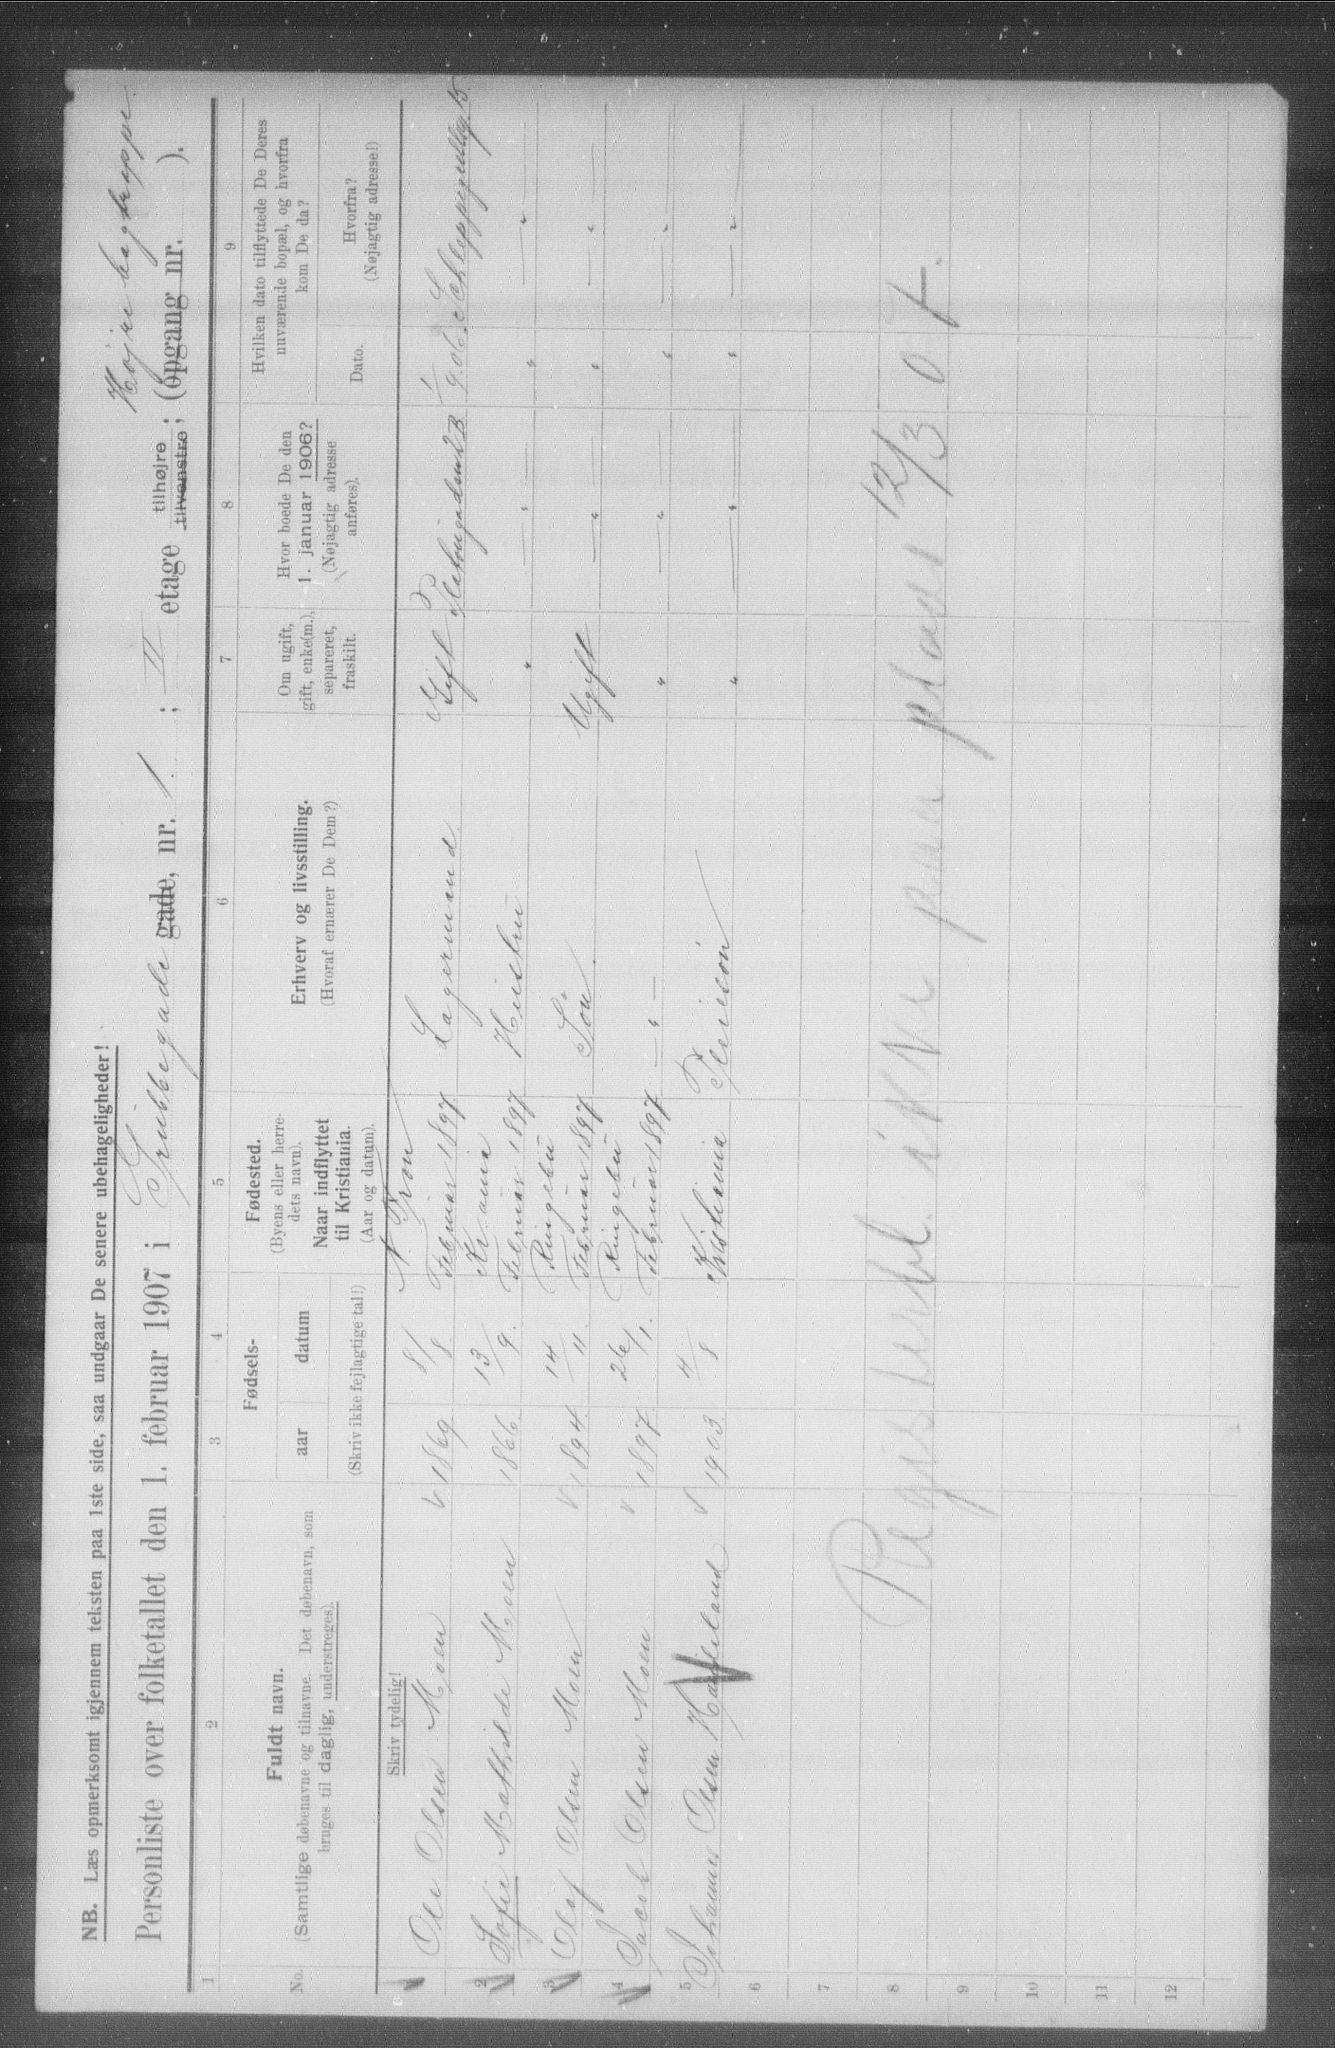 NB. Læs opmerksomt igjennem teksten paa 1ste side, saa undgaar De senere ubehageligheder!
Højre bagtrappe
Personliste over folketallet den 1. februar 1907 i Grubbegade gade, nr. 1 ; II etage tilhøjre tilvenstre ; (opgang nr. ).
1 2 3 4 5 6 7 8 9
No.
Fuldt navn.
(Samtlige døbenavne og tilnavne. Det døbenavn, som
bruges til daglig, understreges).
Fødsels-
aar datum
(Skriv ikke fejlagtige tal!)
Fødested.
(Byens eller herre-
dets navn).
Naar indflyttet
til Kristiania.
(Aar og datum).
Erhverv og livsstilling.
(Hvoraf ernærer De Dem?)
Om ugift,
gift, enke(m.),
separeret,
fraskilt.
Hvor boede De den
1. januar 1906?
(Nøjagtig adresse
anføres).
Hvilken dato tilflyttede De Deres
nuværende bopæl, og hvorfra
kom De da?
Dato.
Hvorfra?
(Nøjagtig adresse!)
Skriv tydelig!
Ole Olsen Moen 1869 8/8 N. Fron Februar 1897 Lagermand. Gift
2 Sofie Mathilde Moen 1866. 13/9. Kr.ania Februar 1897 Hustru " — " — " — " —
3 Olaf Olsen Moen 1894. 14/11. Ringebu Februar 1897 Søn. Ugift — " — " — " —
4 Jacob Olsen Moen 1897 26/1. Ringebu Februar 1897 — " — " — " — " — " —
5 Johannes Olsen 1903 4/8 Kristiania Pleiesøn " — " — " — " —
6
7
8
9
10
11
12
ikke paa plads 12/3 07.